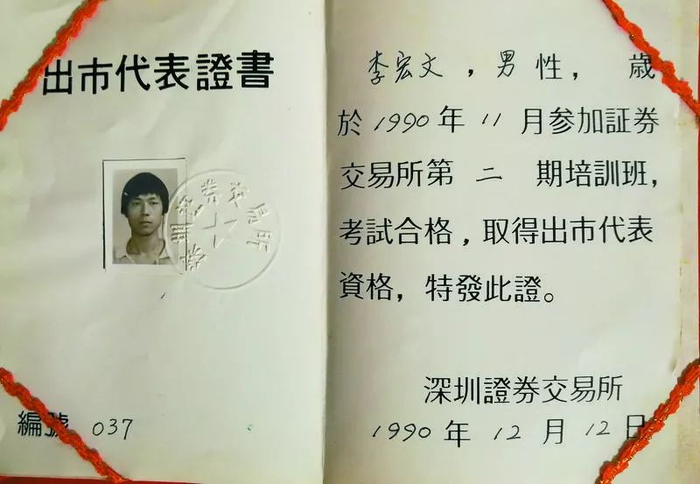 出市代表證書
編號 037
李宏文，男性， 歲
於1990年11月参加証券
交易所第二期培訓班，
考試合格，取得出市代表
資格，特發此證。
深圳證券交易所
1990年12月12日